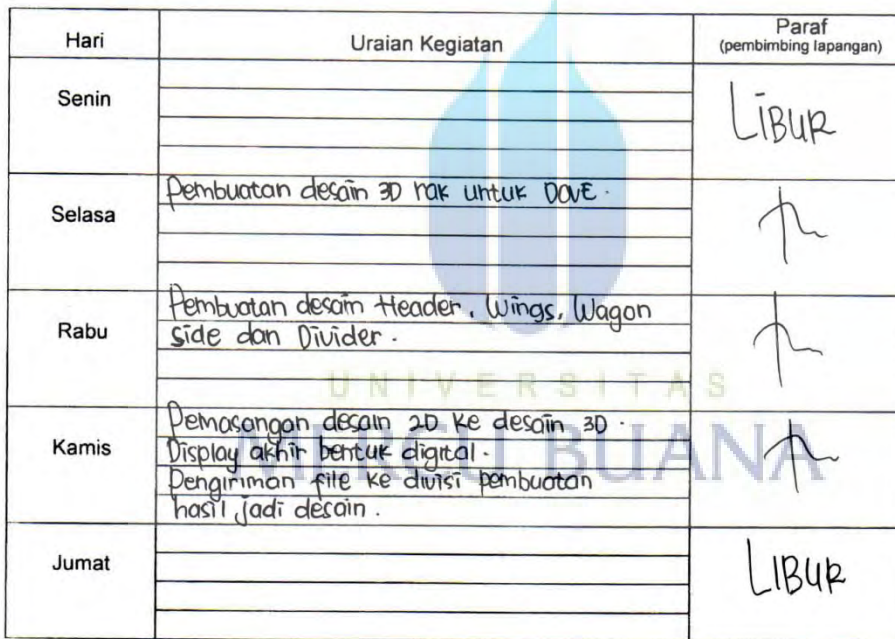 Hari Uraian Kegiatan Paraf
(pembimbing lapangan)
Senin LIBUR
Selasa Pembuatan desain 3D rak untuk DOVE.
Rabu Pembuatan desain Header, Wings, Wagon
side dan Divider.
UNIVERSITAS
MERCU BUANA
Kamis Pemasangan desain 2D ke desain 3D.
Display akhir bentuk digital.
Pengiriman file ke divisi pembuatan
hasil jadi desain.
Jumat LIBUR